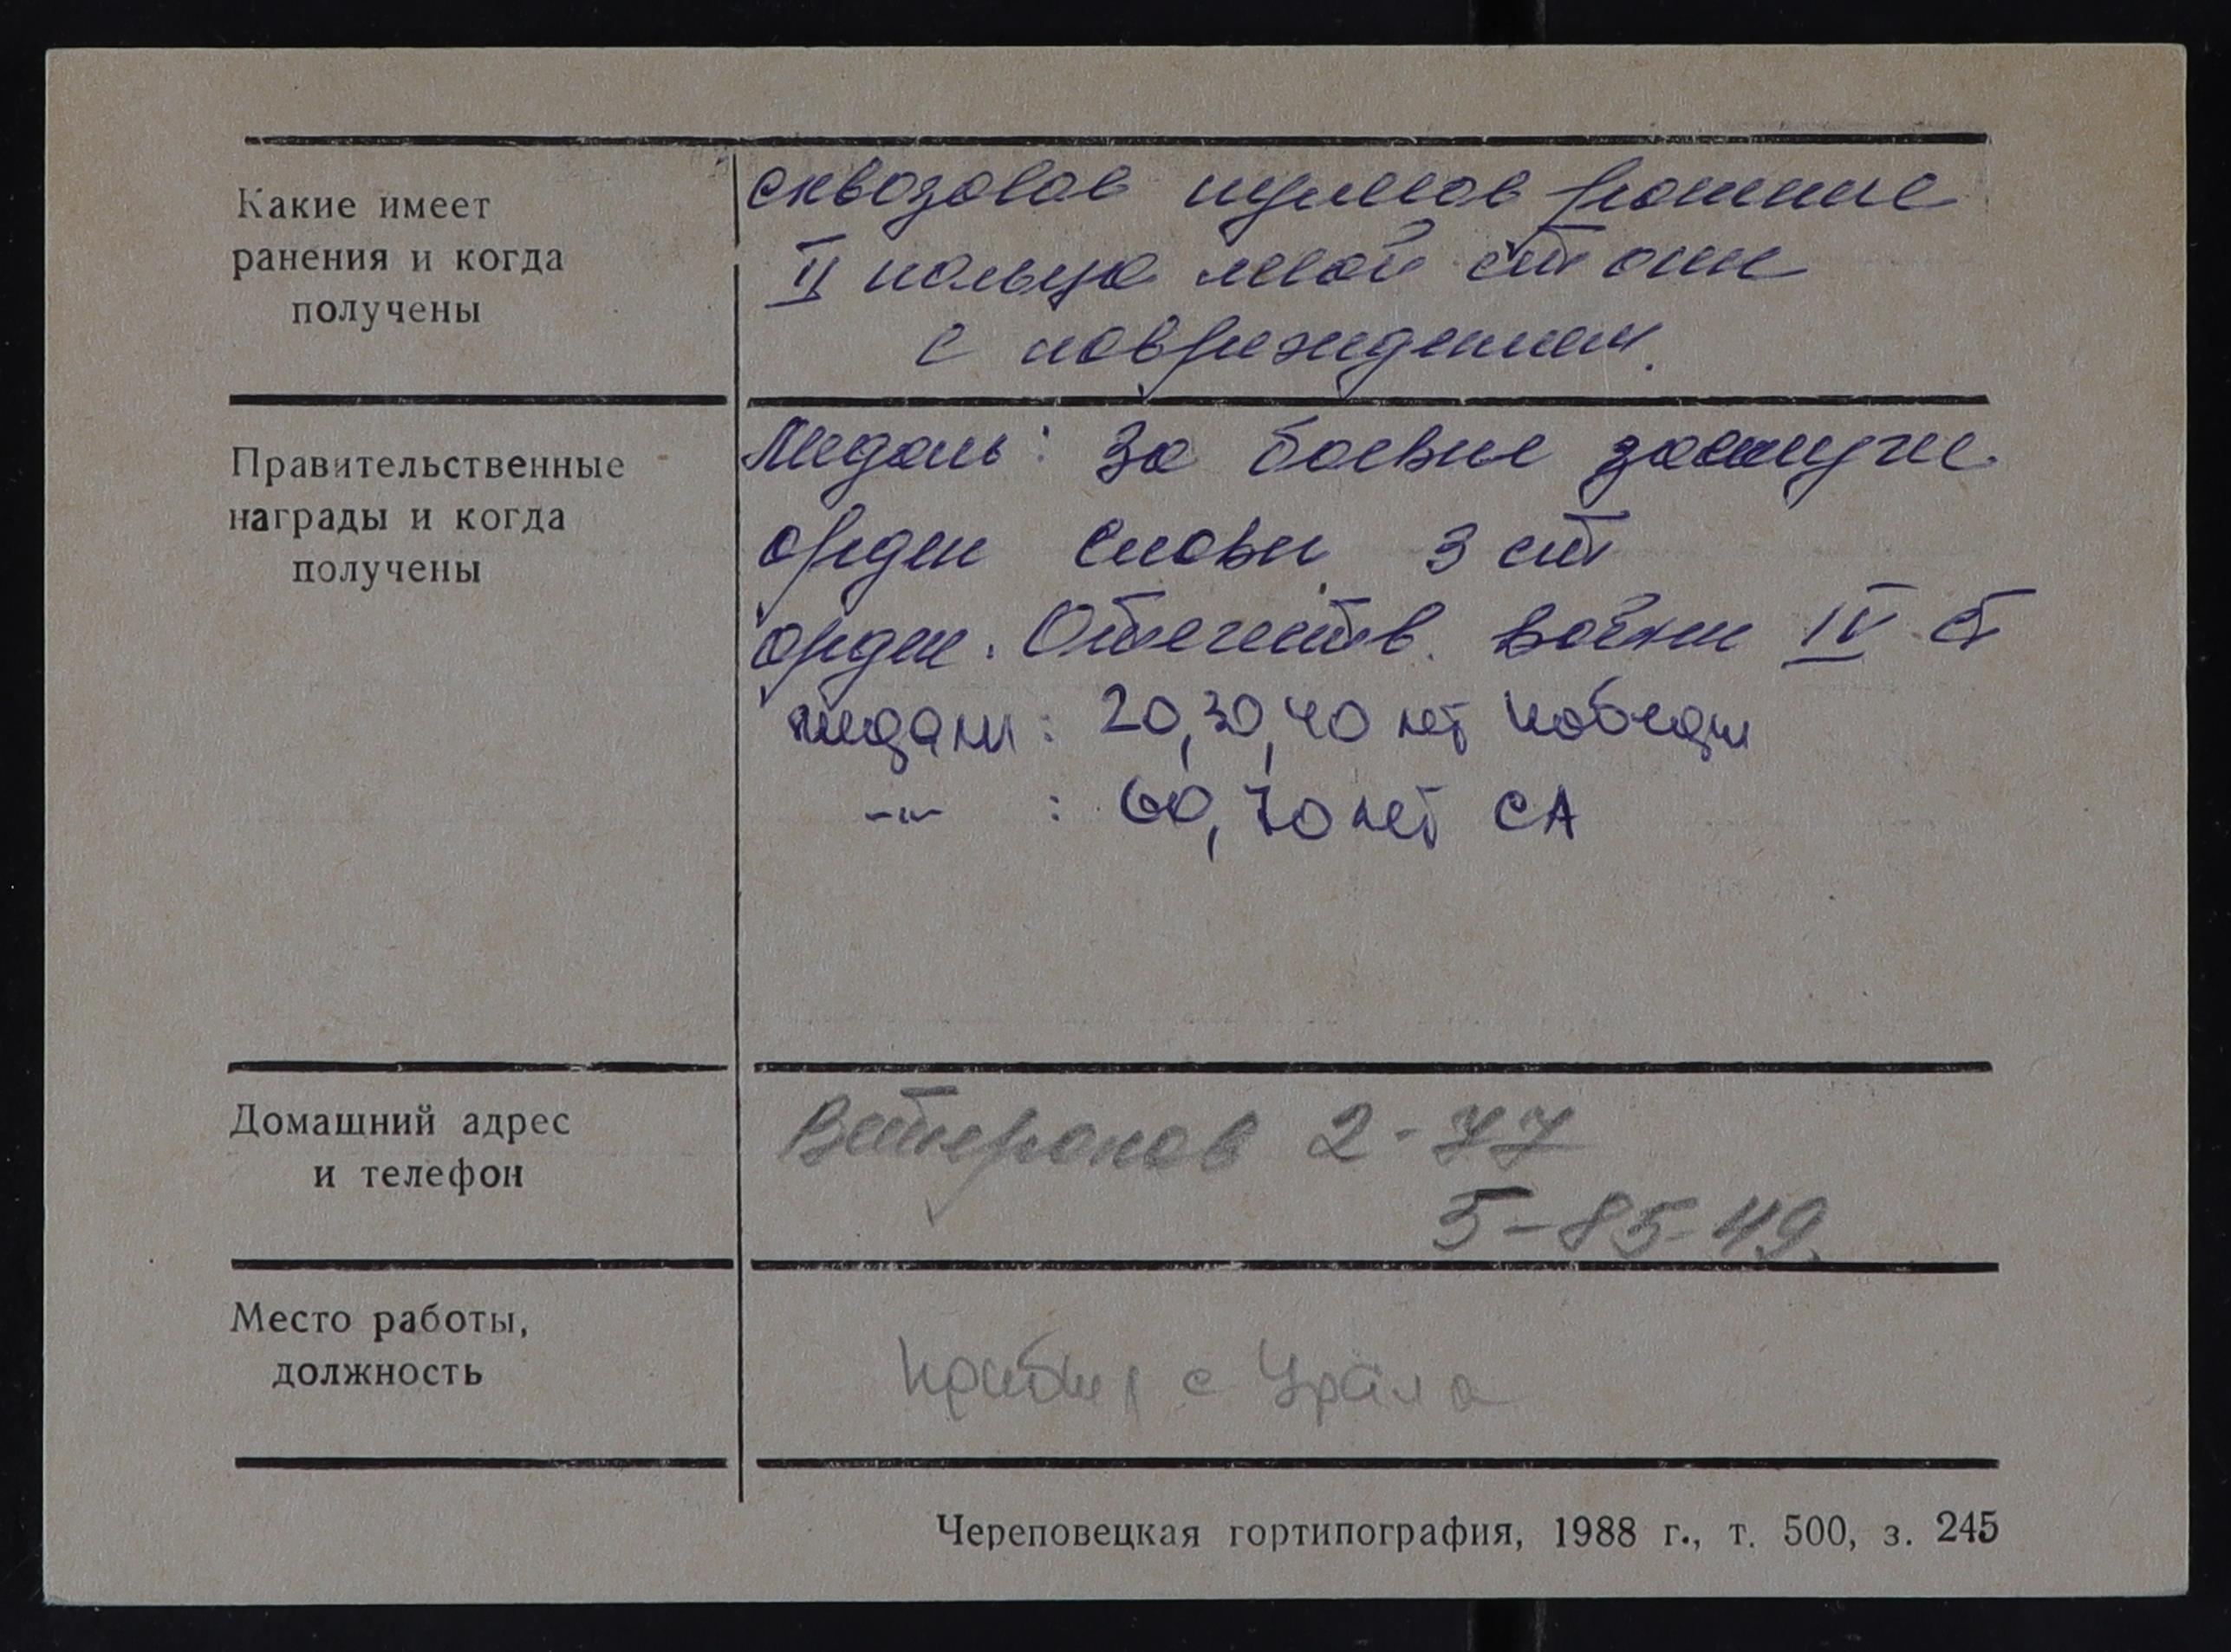 Какие имеет
ранения и когда
получены
сквозовое пулевов ранение
II пальца левой стопы
с повреждением.
Правительственные
награды и когда
получены
Медаль: За боевые заслуги
орден Славы 3 ст
орден. Отечеств. войны IV ст
медали: 20, 30, 40 лет победы
-"- : 60, 70 лет СА
Домашний адрес
и телефон
Ветеранов 2-77
5-85-49.
Место работы,
должность
прибыл с Урала
Череповецкая гортипография, 1988 г., т. 500, з. 245